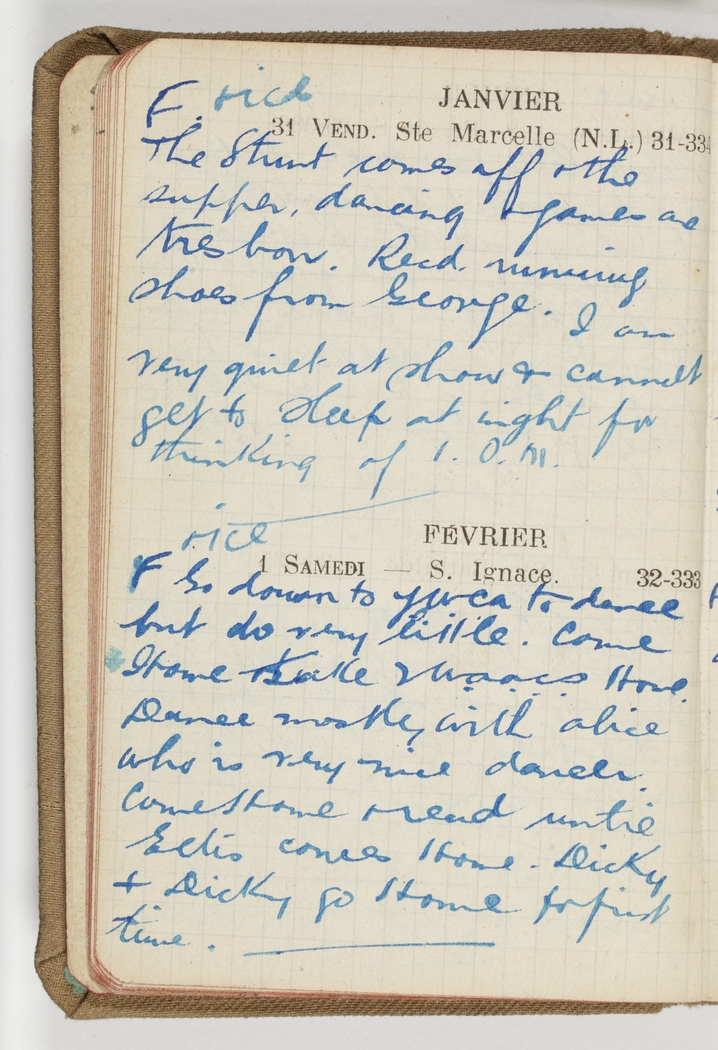 F. rice
JANVIER
31 VEND. Ste Marcelle (N.L.) 31-334
The Stunt comes off & the
supper, dancing & games are
tres bon. Recd. running
shoes from George. I am
very quiet at show & cannot
get to sleep at night for
thinking of I. O. M.
rice
FÉVRIER
1 SAMEDI — S. Ignace. 32-333
F Go down to ywca to dance
but do very little. Come
Home take 2 Waacs Home.
Dance mostly with alice
who is very nice dancer.
Come Home & read until
comes Home. Dicky
& Dicky go Home for first
time.